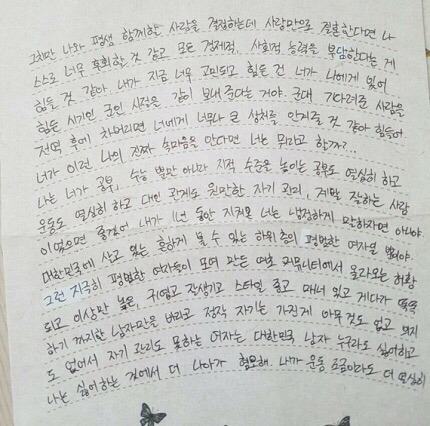 그치만 나와 평생 함께할 사람을 결정하는데 사랑만으로 결혼한다면 나
스스로 너무 후회할 것 같고 모든 경제적, 사회적 능력을 부담한다는 게
힘든 것 같아. 내가 지금 너무 고민되고 힘든 건 너가 나에게 있어
힘든 시기인 군인 시절을 같이 보내준다는 거야. 군대 기다려준 사람을
전역 후에 차버리면 너에게 너무나 큰 상처를 안겨줄 것 같아 힘들어
너가 이런 나의 진짜 속마음을 안다면 너는 뭐라고 할까?...
나는 너가 공부, 수능 뿐만 아니라 지적 수준을 높이는 공부도 열심히 하고
운동도 열심히 하고 대인 관계도 원만한 자기 관리, 계발 잘하는 사람
이었으면 좋겠어 내가 1년 동안 지켜본 너는 냉정하게 말하자면 아니야.
대한민국에 살고 있는 흔하게 볼 수 있는 하위층의 평범한 여자일 뿐이야
그런 지극히 평범한 여자들이 모여 만든 여초 커뮤니티에서 올라오는 허황
되고 이상만 높은, 귀엽고 잘생기고 스타일 좋고 매너 있고 게다가 똑똑
하기 까지한 남자만을 바라고 정작 자기는 가진게 아무 것도 없고 의지
도 없어서 자기 관리도 못하는 여자는 대한민국 남자 누구라도 싫어하고
나는 싫어하는 것에서 더 나아가 혐오해. 내가 운동 조금이라도 더 열심히